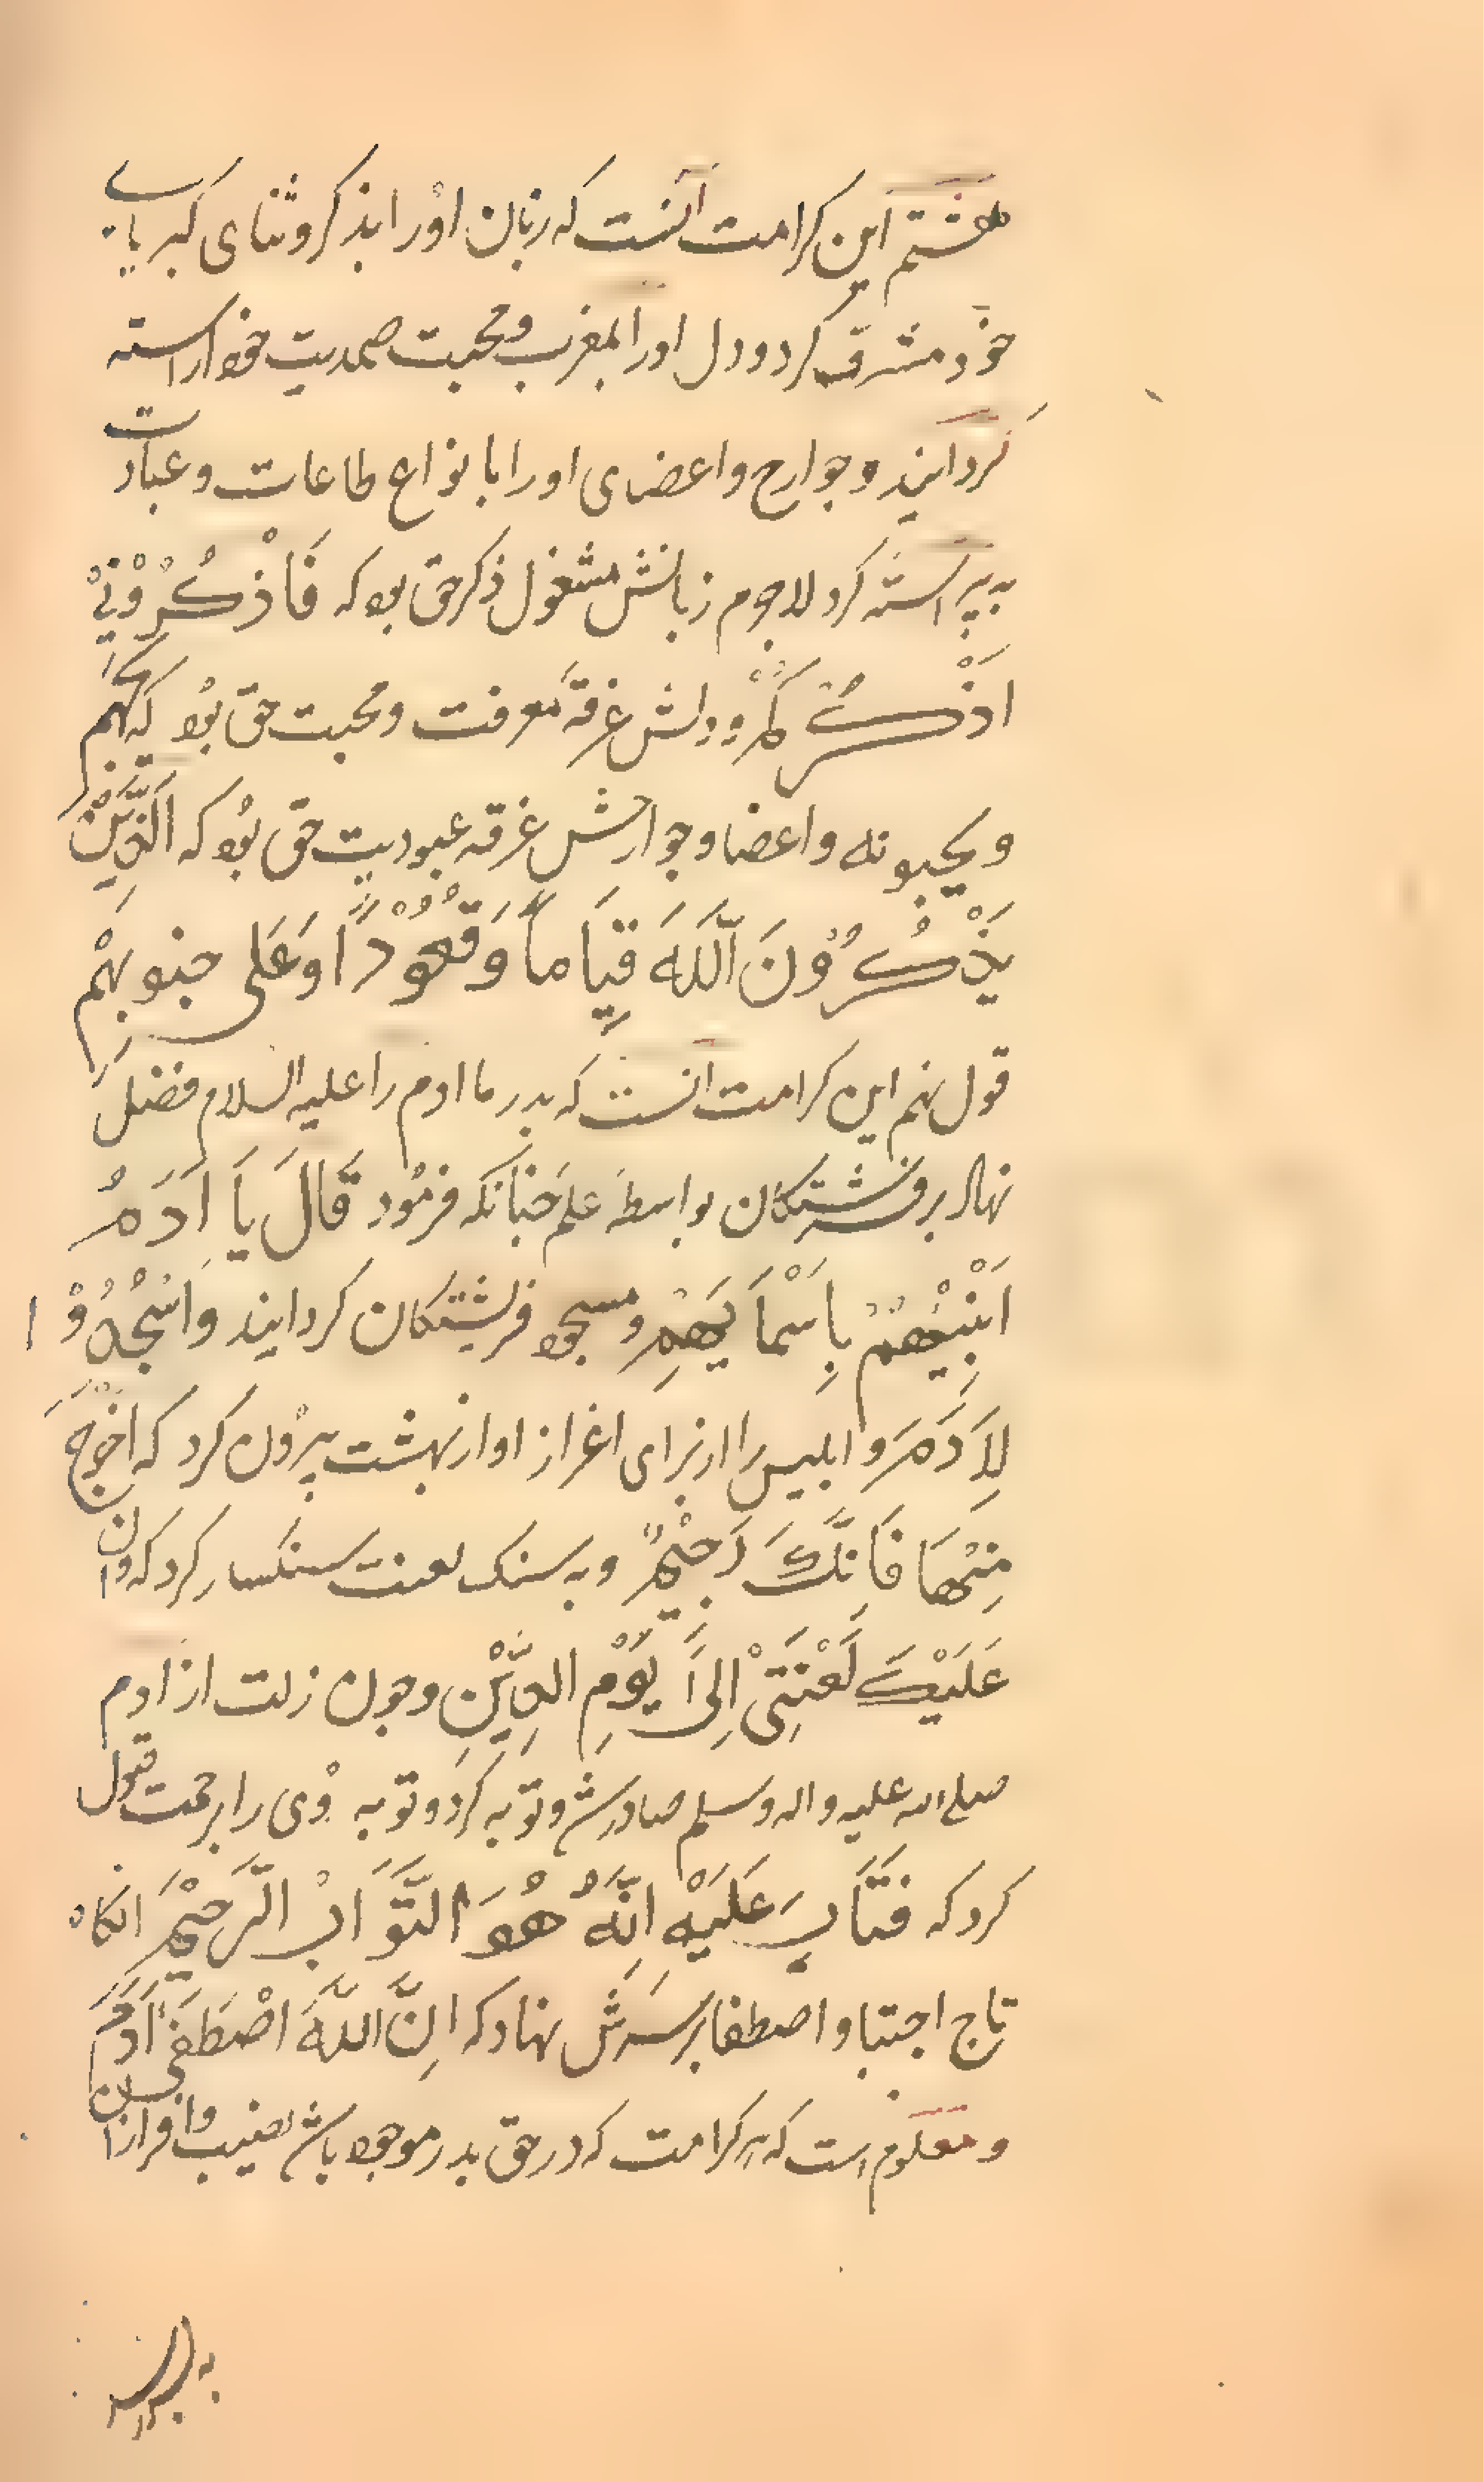 هشتم این کرامت آنست که زبان اورا بذکر وثنای کبریایی
خود مشرف کرد ودل اورا بمغرب ومحبت صمدیت خود اراسته
کردانید وجوارح واعضای اورا بانواع طاعات وعبادت
به پیراسته کرد لاجرم زبانش مشغول ذکر حق بود که فَاذْكُرُوْنِيْ
اَذْكُرْكُمْ ودلش غرقه معرفت ومحبت حق بود که یحبهم
ویحبونه واعضا وجوارحش غرقه عبودیت حق بود که اَلَّذِيْنَ
يَذْكُرُوْنَ اللَّهَ قِيَاماً وَقُعُوْدًا وَعَلى جنوبِهْم
قول نهم این کرامت آنست که پدر ما ادم را علیه السلام فضل
نهاد بر فرشتکان بواسطه علم چنانکه فرمُود قَالَ يَا اَدَمُ
اَنْبِئْهُمْ بِاَسْمَايَهِمْ ومسجود فرشتکان کردانید وَاسْجُدُوْا
لِاَدَمَ وابلیس را از برای اغراز او از بهشت بیرون کرد که اخْرُجْ
مِنْهَا فَاِنَّكَ رَجِيْمٌ وبه سنک لعنت سنکسار کرد که وان
عَلَيْكَ لَعْنَتِيْ اِلىَ يَوْمِ الدِّيْنِ وچون زلت از ادم
صلے الله علیه واله وسلم صادر شد وتوبه کرد وتوبه وی را برحمت قبول
کرد که فَتَابَ عَلَيْهِ اِنَّهُ هُوَ التَّوَّابُ الرَّحِيْمُ انکاه
تاج اجتبا واصطفا بر سرش نهاد که اِنَّ اللَّهَ اصْطَفَى اَدَمَ
ومعلوم است که هر کرامت که در حق پدر موجود باشد نصیب وافر ازان